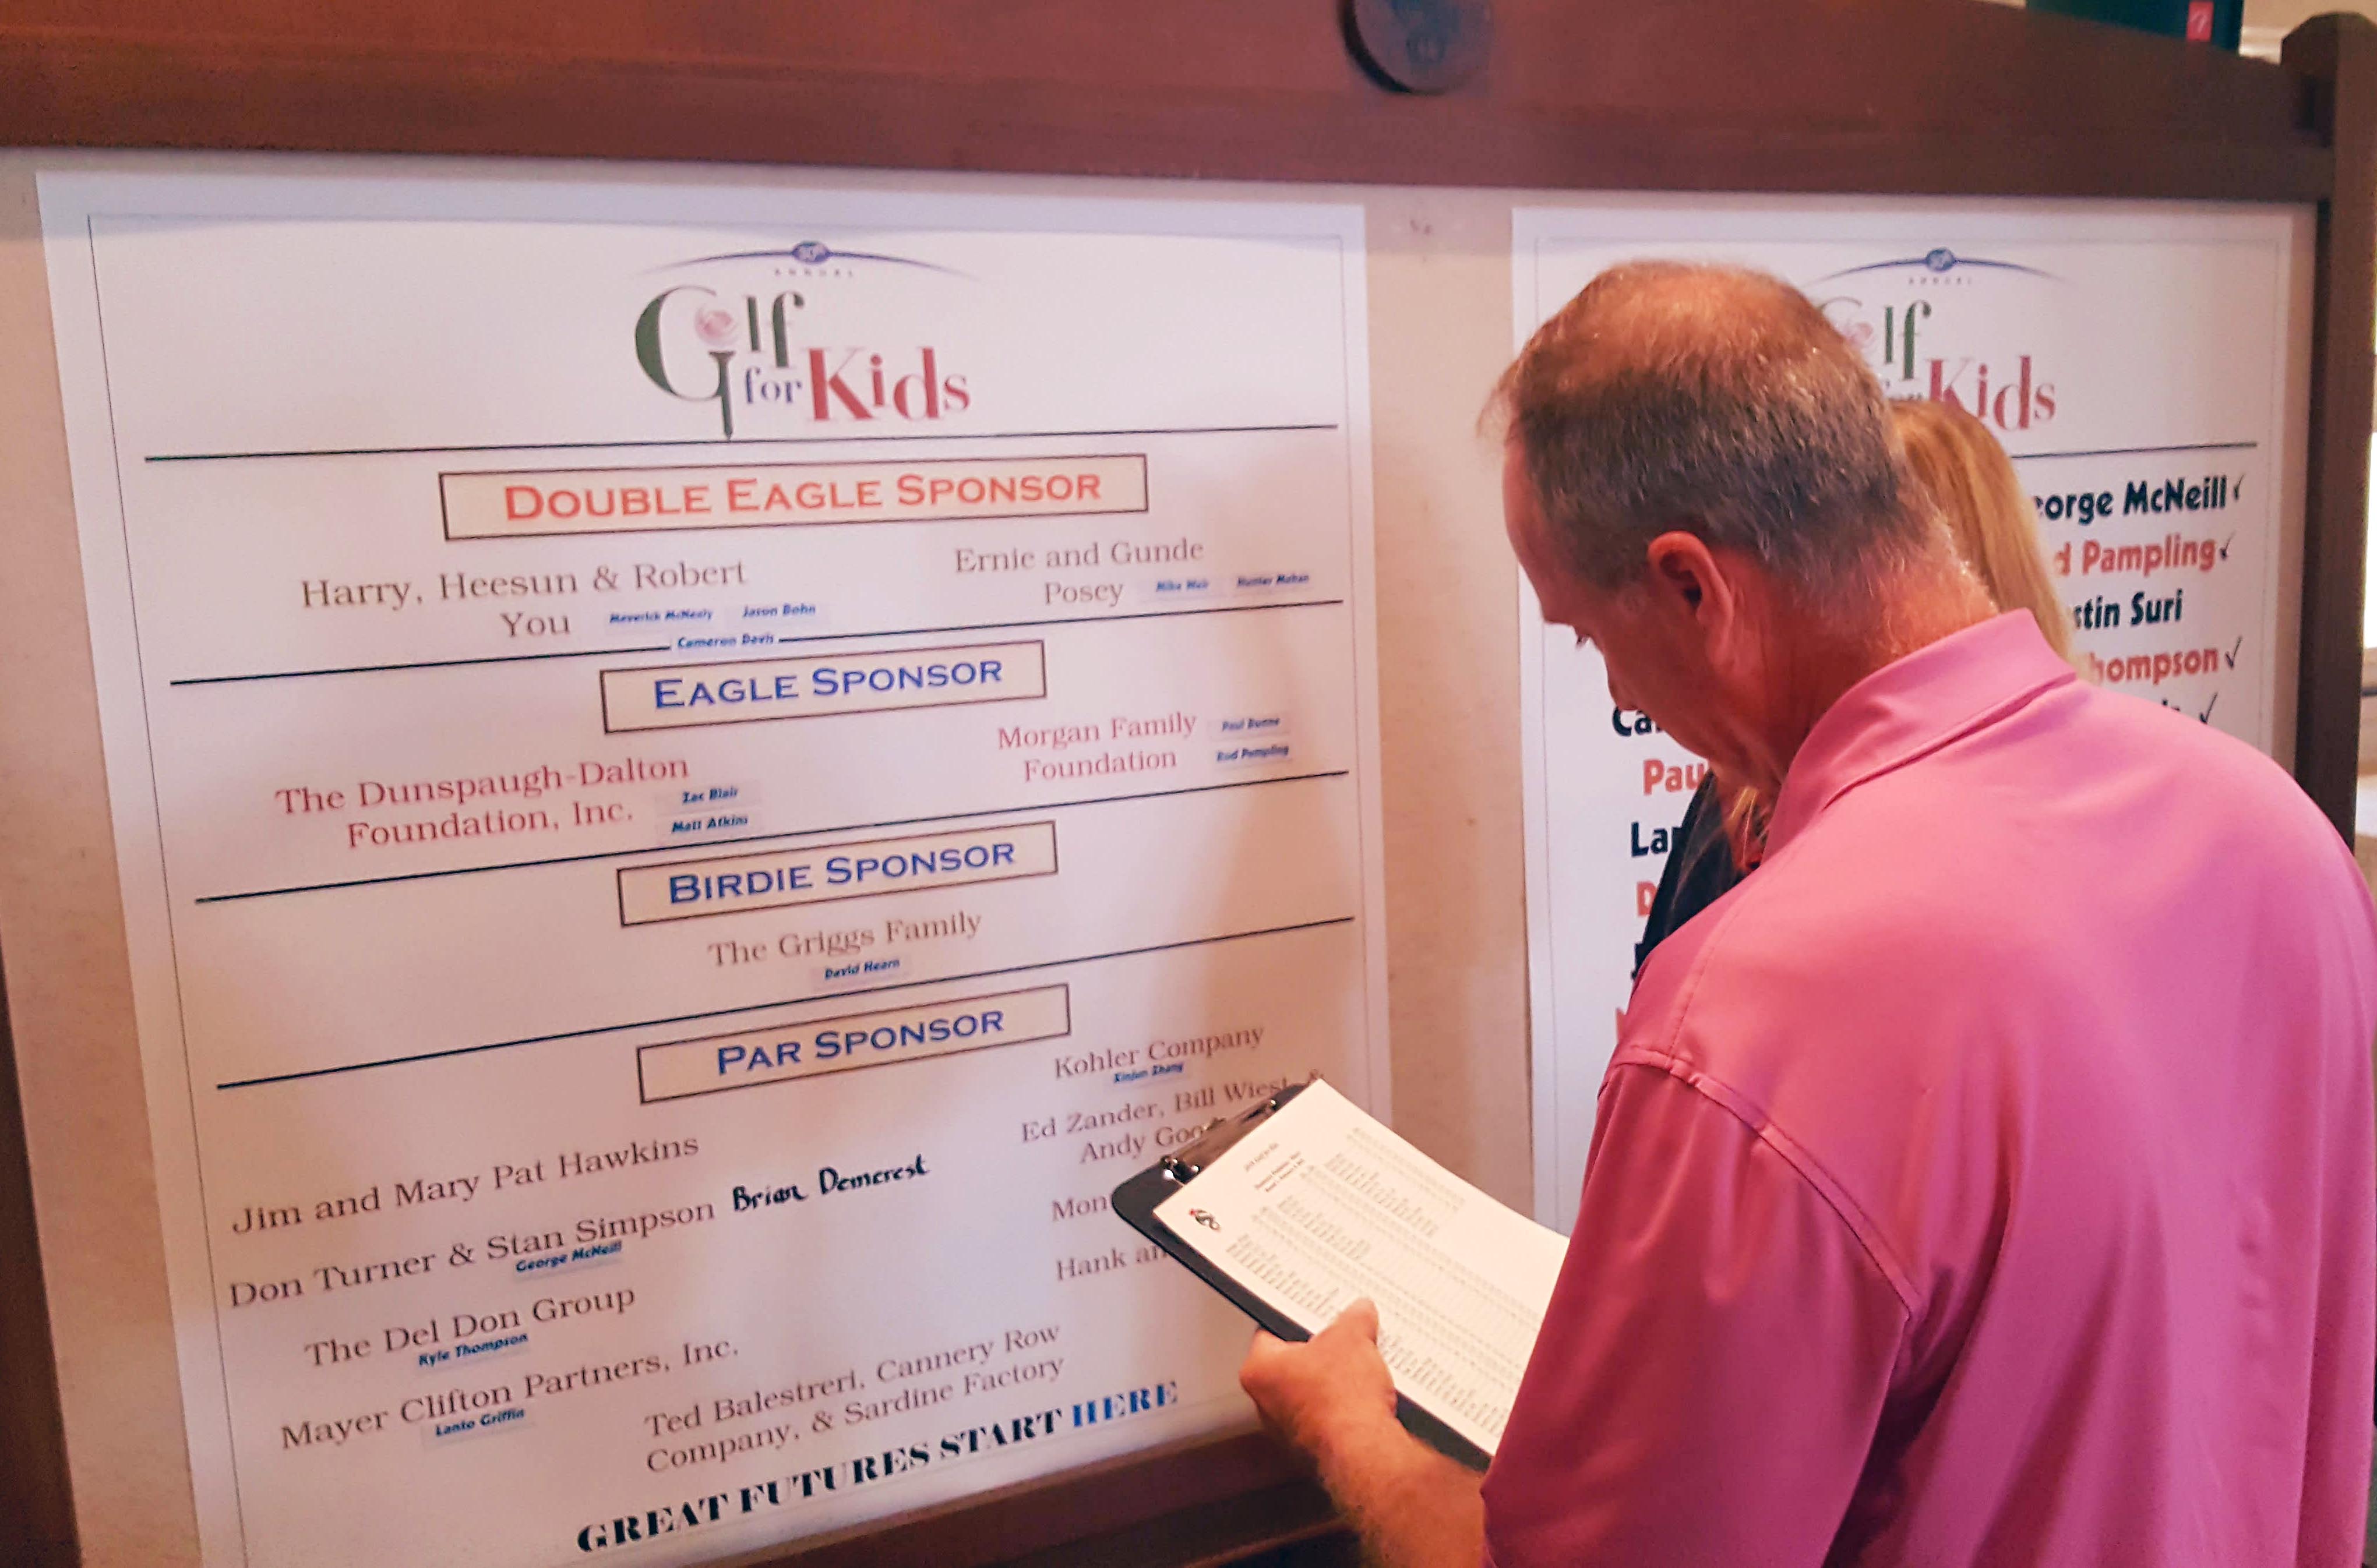 30th
ANNUAL
Golf
for Kids
DOUBLE EAGLE SPONSOR
Harry, Heesun & Robert
You
Maverick McNealy
Jason Bohn
Cameron Davis
Ernie and Gunde
Posey
Mike Weir
Hunter Mahan
EAGLE SPONSOR
The Dunspaugh-Dalton
Foundation, Inc.
Zac Blair
Matt Atkins
Morgan Family
Foundation
Paul Dunne
Rod Pampling
BIRDIE SPONSOR
The Griggs Family
David Hearn
PAR SPONSOR
Jim and Mary Pat Hawkins
Don Turner & Stan Simpson Brian Demcrest
George McNeill
The Del Don Group
Kyle Thompson
Mayer Clifton Partners, Inc.
Lanto Griffin
Kohler Company
Xinjun Zhang
Ed Zander, Bill Wiest &
Andy Goo
Mon
Hank an
Ted Balestreri, Cannery Row
Company, & Sardine Factory
GREAT FUTURES START HERE
30th
ANNUAL
lf
Kids
orge McNeill ✓
d Pampling ✓
stin Suri
hompson ✓
✓
Ca
Pau
Lar
D